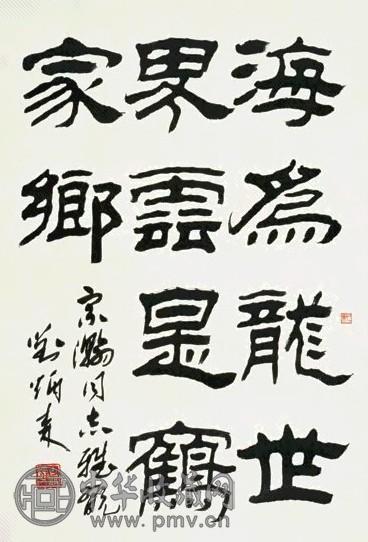 海為龍世
界雲是鶴
家鄉
宗瀚同志雅
劉炳森
中华收藏网
www.pmv.cn